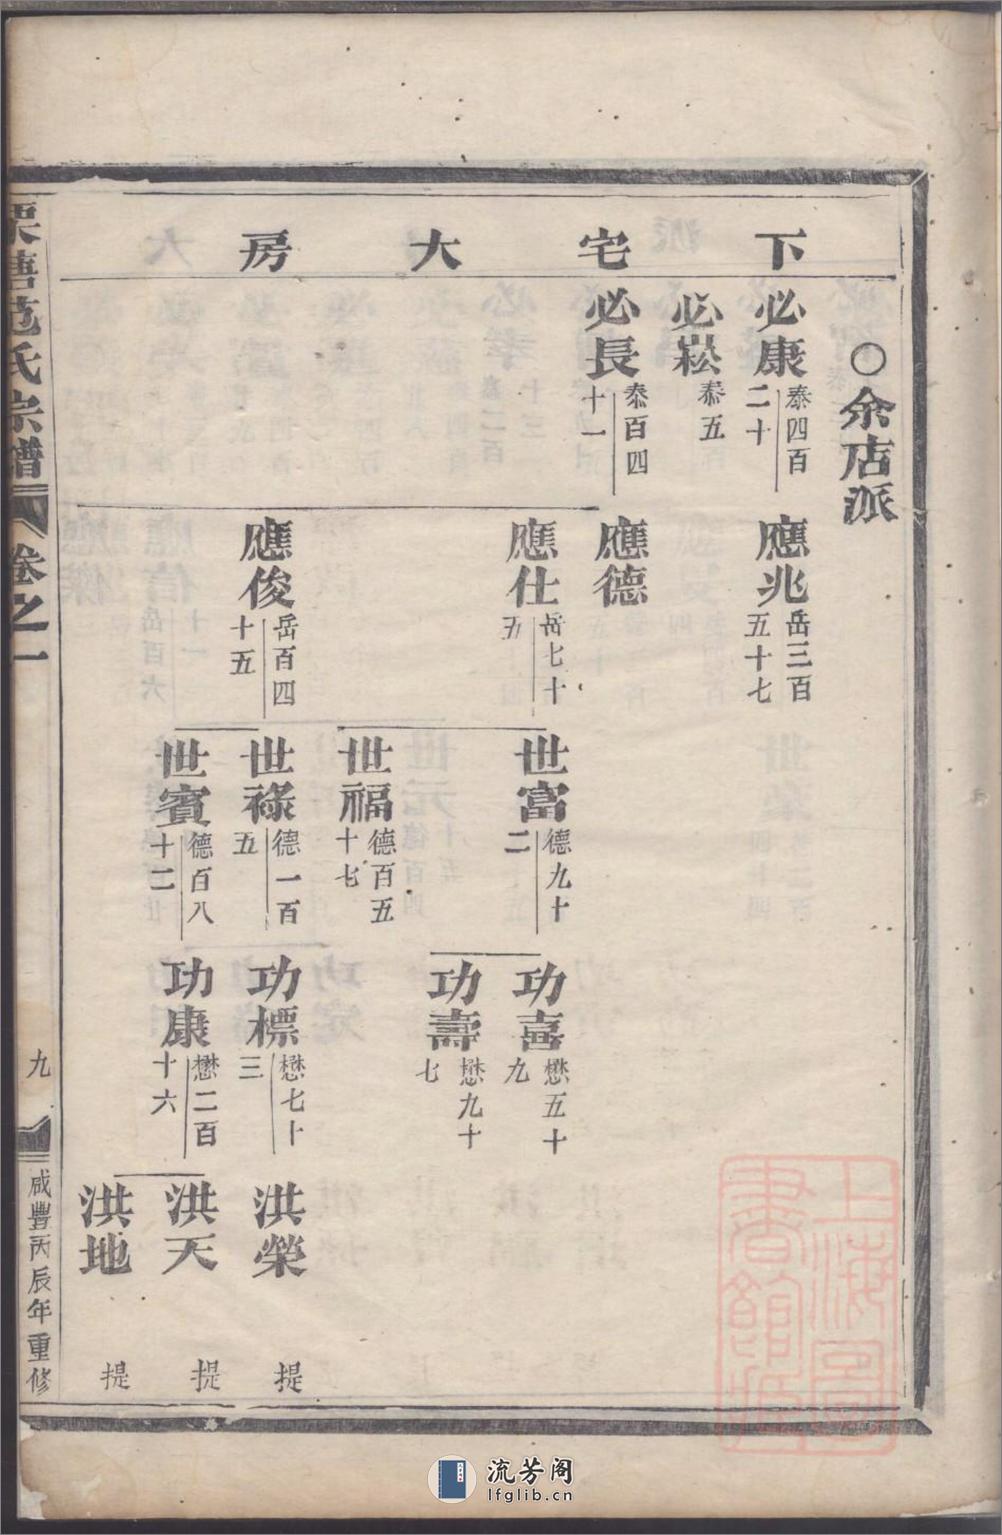 下宅大房
○余店派
必康 泰四百二十
必崧 泰五
必長 泰百四十一
應兆 岳三百五十七
應德
應仕 岳七十五
應俊 岳百四十五
世富 德九十二
世福 德百五十七
世祿 德一百五
世賓 德百八十二
功喜 懋五十九
功壽 懋九十七
功標 懋七十三
功康 懋二百十六
洪榮 提
洪天 提
洪地 提
栗塘范氏宗譜 卷之一
九
咸豐丙辰年重修
上海圖書館藏
流芳阁
lfglib.cn